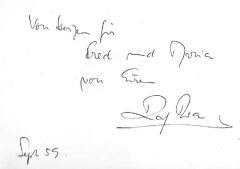 Von Herzen für
Fred und Maria
von
Sept 59.